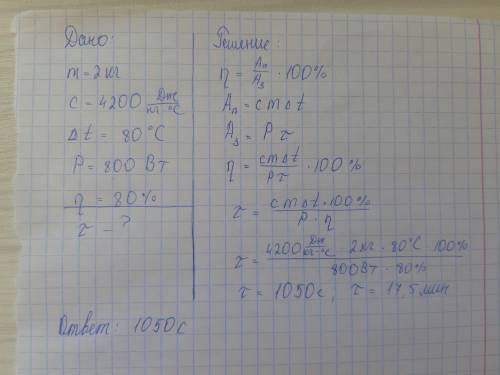 Дано:
m = 2 кг
c = 4200 Дж/кг·°C
Δt = 80°C
P = 800 Вт
η = 80%
τ - ?
Решение:
η = Aп/Aз · 100%
Aп = cmΔt
Aз = Pτ
η = cmΔt/Pτ · 100%
τ = cmΔt·100%/P·η
τ = 4200 Дж/кг·°C · 2кг · 80°C 100%/800Вт · 80%
τ = 1050 с, τ = 17,5 мин
Ответ: 1050 с